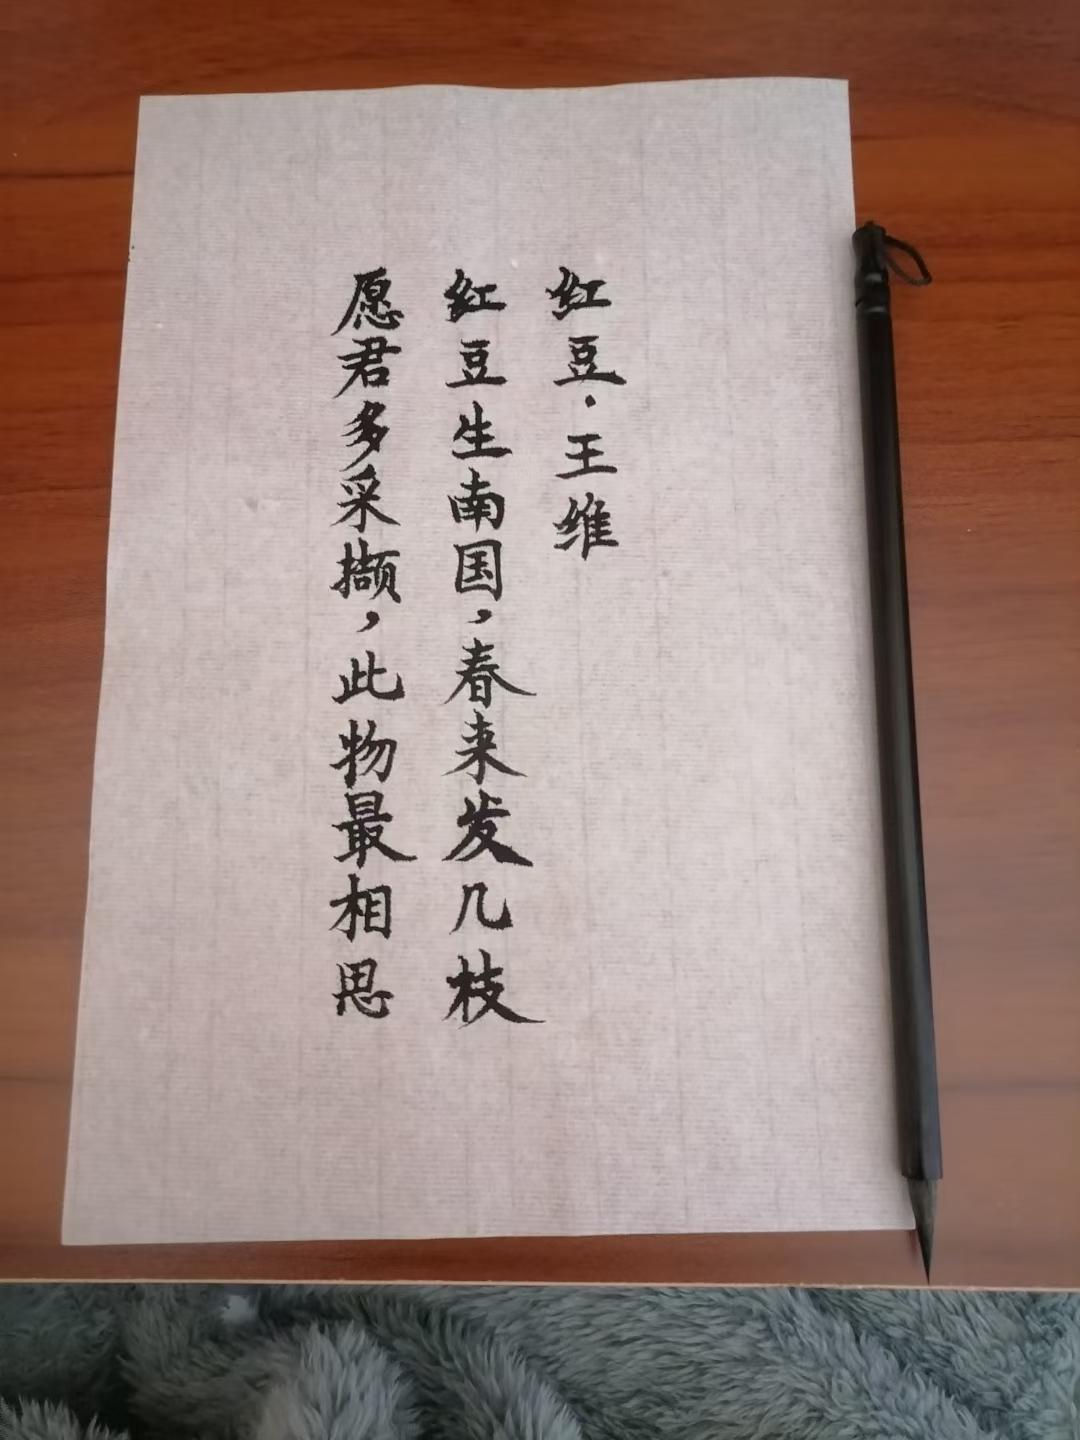 红豆·王维
红豆生南国，春来发几枝
愿君多采撷，此物最相思